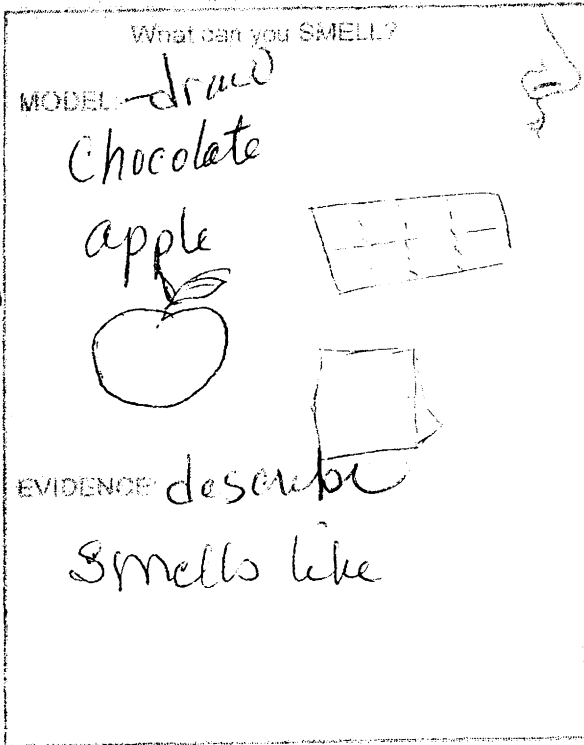 What can you SMELL?
MODEL: draw
Chocolate
apple
EVIDENCE: describe
Smells like